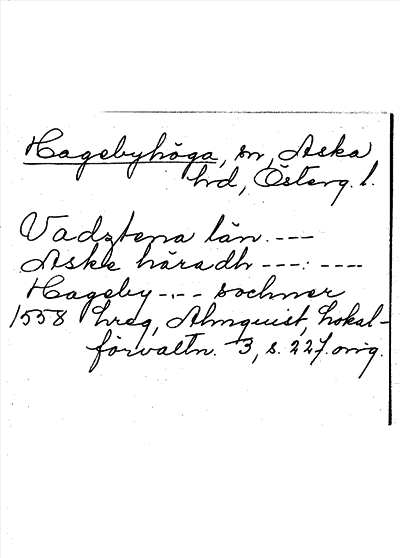 Hagebyhöga, sn, Aska
hd, Österg. l.
Vadztena län. ---
Aske häradh ---:----
Hageby -.-- sochner
1558 hreg, Almquist, Lokal-
förvaltn. 3, s. 227. orig.